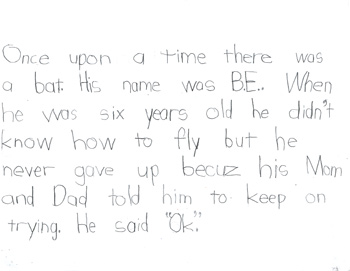 Once upon a time there was
a bat. His name was B.E.. When
he was six years old he didn't
know how to fly but he
never gave up becuz his Mom
and Dad told him to keep on
trying. He said "Ok."